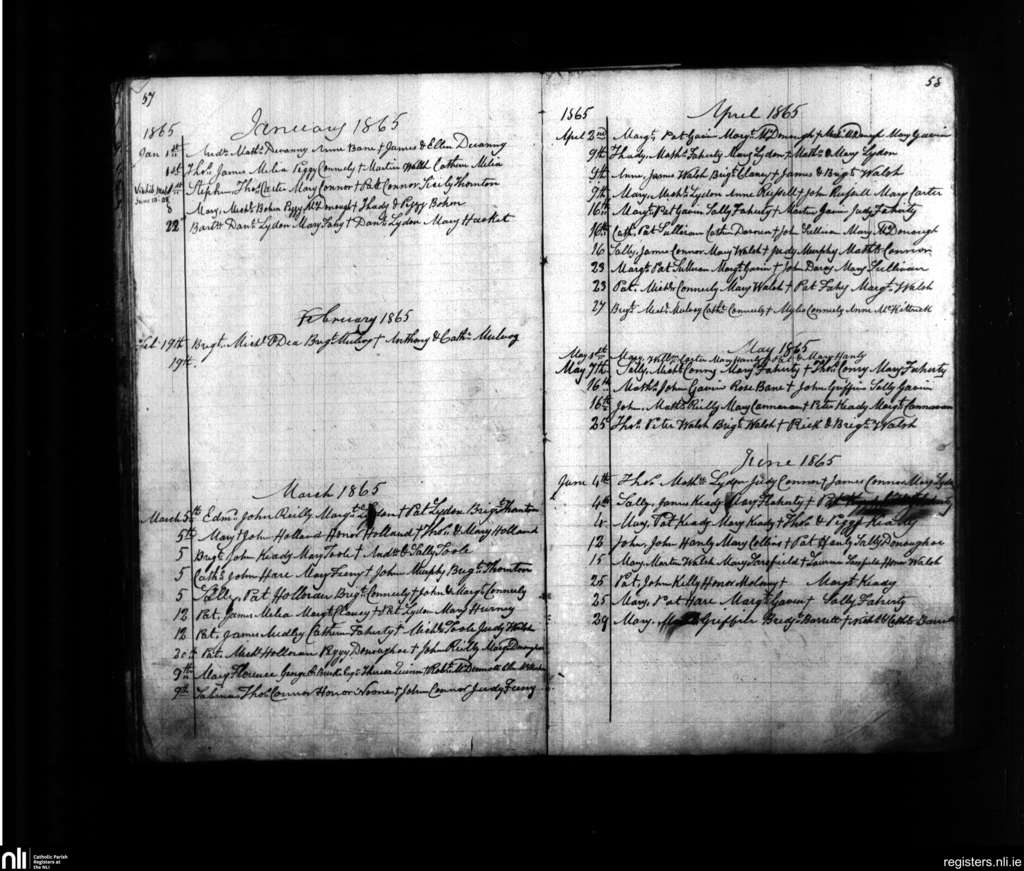 57
January 1865
1865
Jan 1st Andw Mathw Devanny Anne Bane + James & Ellen Devanny
1st Thos James Melia Peggy Connely + Martin Walsh Cathern Melia
Stephen Thos Mary Connor + Pat Connor Sicily Thornton
8 Mary, Michl Bohen Peggy McDonough + Thady & Peggy Bohen
22 Bartw Danl Lydon Mary Fahy + Danl Lydon Mary Hacket
February 1865
Feb 19th Brigt Michl O'Dea Brigt Mulvey + Anthony & Cathn Mulvey
19th.
March 1865
March 5th Edmd John Reilly Margt Lydon + Pat Lydon Brigt Thornton
5th Mary + John Holland Honor Holland + Thos & Mary Holland
5 Brigt John Keady Mary Toole + Andw & Sally Toole
5 Cathn John Hare Mary Feeny + John Murphy Brigt Thornton
5 Sally, Pat Holloran Brigt Connely + John & Margt Connely
12 Pat. James Melia Margt Clancy + Pat Lydon Mary
12 Pat. James Cathern Faherty + Michl Toole Judy Walsh
Pat. Michl Holloran Peggy Donoughoe + John Reilly Margt
9th Mary Florence George Theresa Quinn + Robt McDermott
9th Sabina Thos Connor Honor Noone + John Connor Judy Feeny
58
April 1865
1865
April 2nd Margt Pat Gavin Margt McDonough + McDonough Mary Gavin
9th Thady, Mathw Faherty Mary Lydon + Mathw & Mary Lydon
9th Anne, James Walsh Brigt Clancy + James & Brigt Walsh
9th Mary, Michl Lydon Anne Russell + John Russell Mary Carter
16th Margt Pat Gavin Sally Faherty + Martin Gavin Judy Faherty
16th Cathn Pat Sullivan + John Sullivan Mary McDonough
16 Sally, James Connor Mary Walsh + Judy Murphy Mathw Connor
23 Margt Pat Sullivan Margt Gavin + John Darcy Mary Sullivan
23 Pat. Michl Connely Mary Walsh + Pat Fahy Margt Walsh
27 Brigt Michl Mulvey Cathn Connely + Myles Connely Anne McKitrick
May 1865
May Mary, Willm Carter Mary Hanly + Pat & Mary Hanly
May 7th Sally, Michl Conry Mary Faherty + Thos Conry Mary Faherty
16th Mathw John Gavin Rose Bane + John Griffin Sally Gavin
16th John, Mathw Reilly Mary Cannavan + Peter Keady Margt Cannavan
25 Thos Peter Walsh Brigt Walsh + Rick & Brigt Walsh
June 1865
June 4th Thos Mathw Lydon Judy Connor + James Connor Mary Lydon
4th Sally, James Keady Mary Flaherty + Pat
4 Mary, Pat Keady Mary Keady + Thos & Peggy Keady
12 John, John Hanly Mary Collins + Pat Hanly Sally Donoughoe
15 Mary, Martin Walsh Mary + Honor Walsh
25 Pat, John Kelly Honor Molony + Margt Keady
25 Mary, Pat Hare Margt Gavin + Sally Faherty
29 Mary, Griffin Bridgt Barrett +
nli
Catholic Parish
Registers at
the NLI
registers.nli.ie